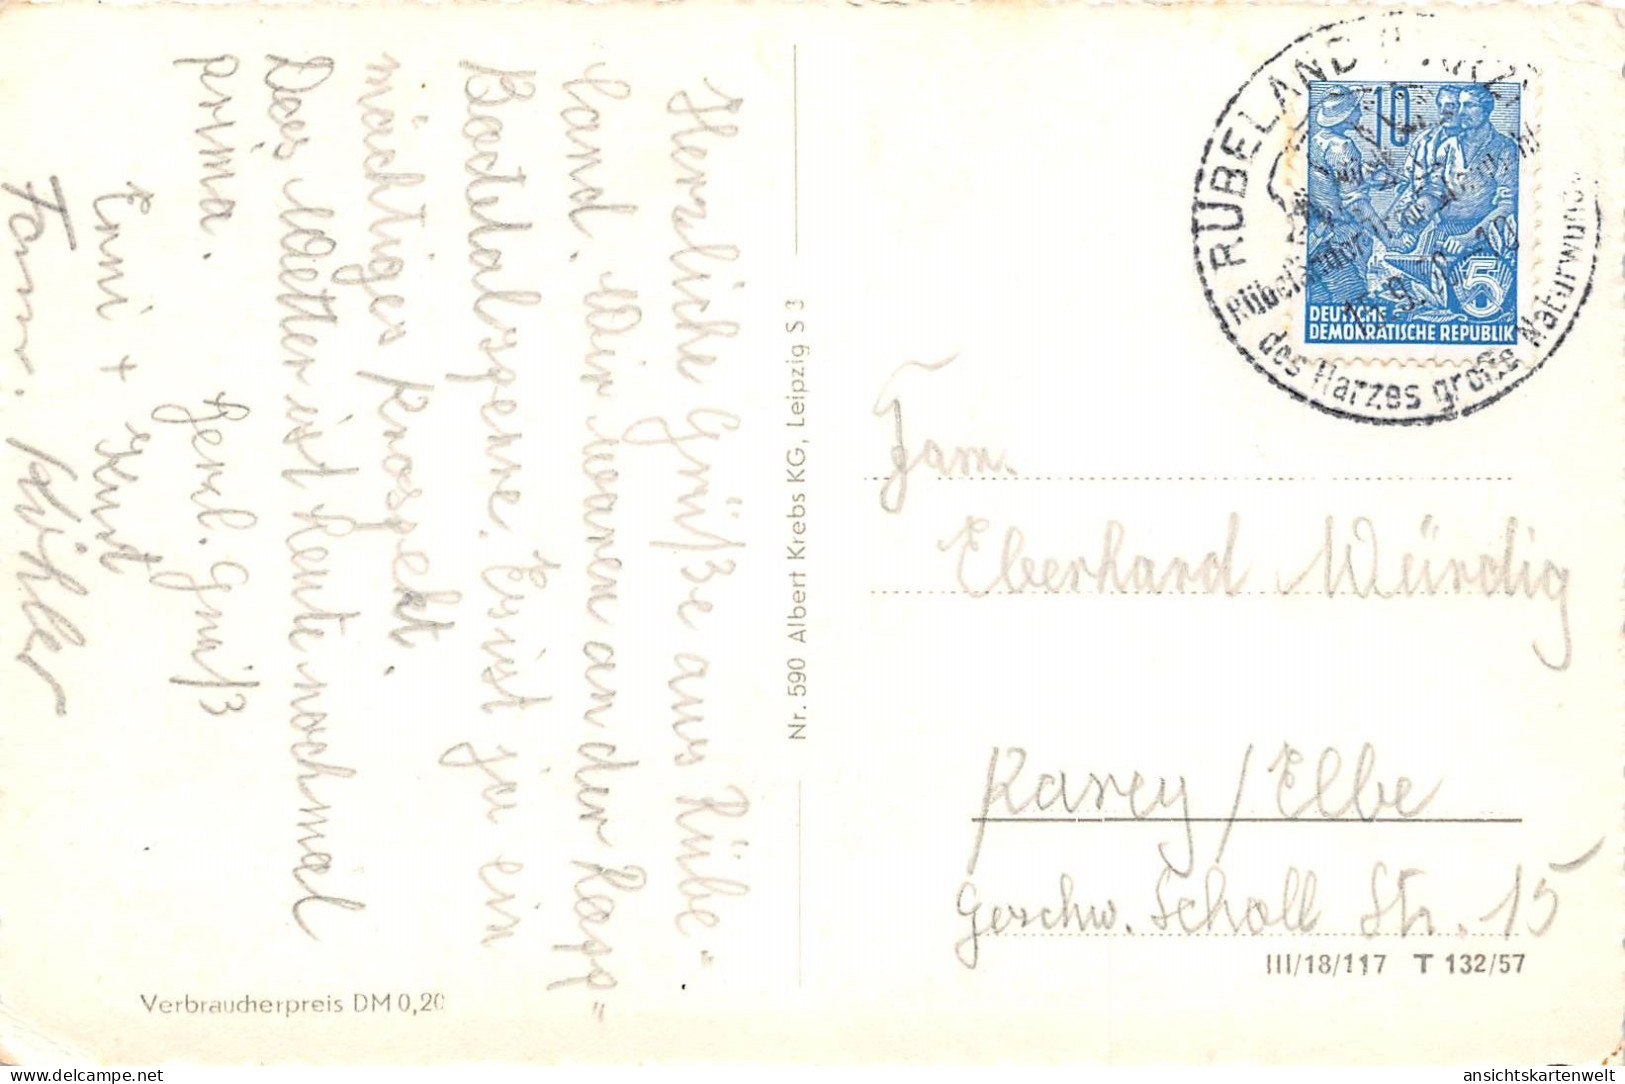 Herzliche Grüße aus Rübe-
land. Wir waren an der "Rapp"
Bodetalsperre. Es ist ja ein
mächtiges Prospekt.
Das Wetter ist heute nochmal
prima.
Herzl. Gruß
Enni + Kurt
Fam. Köhler
Verbraucherpreis DM 0,20
Nr. 590 Albert Krebs KG, Leipzig S 3
RÜBELAND
des Harzes große Naturwund
10
5
DEUTSCHE
DEMOKRATISCHE REPUBLIK
Fam.
Eberhard Würdig
Parey / Elbe
Geschw. Scholl Str. 15
III/18/117 T 132/57
ansichtskartenwelt